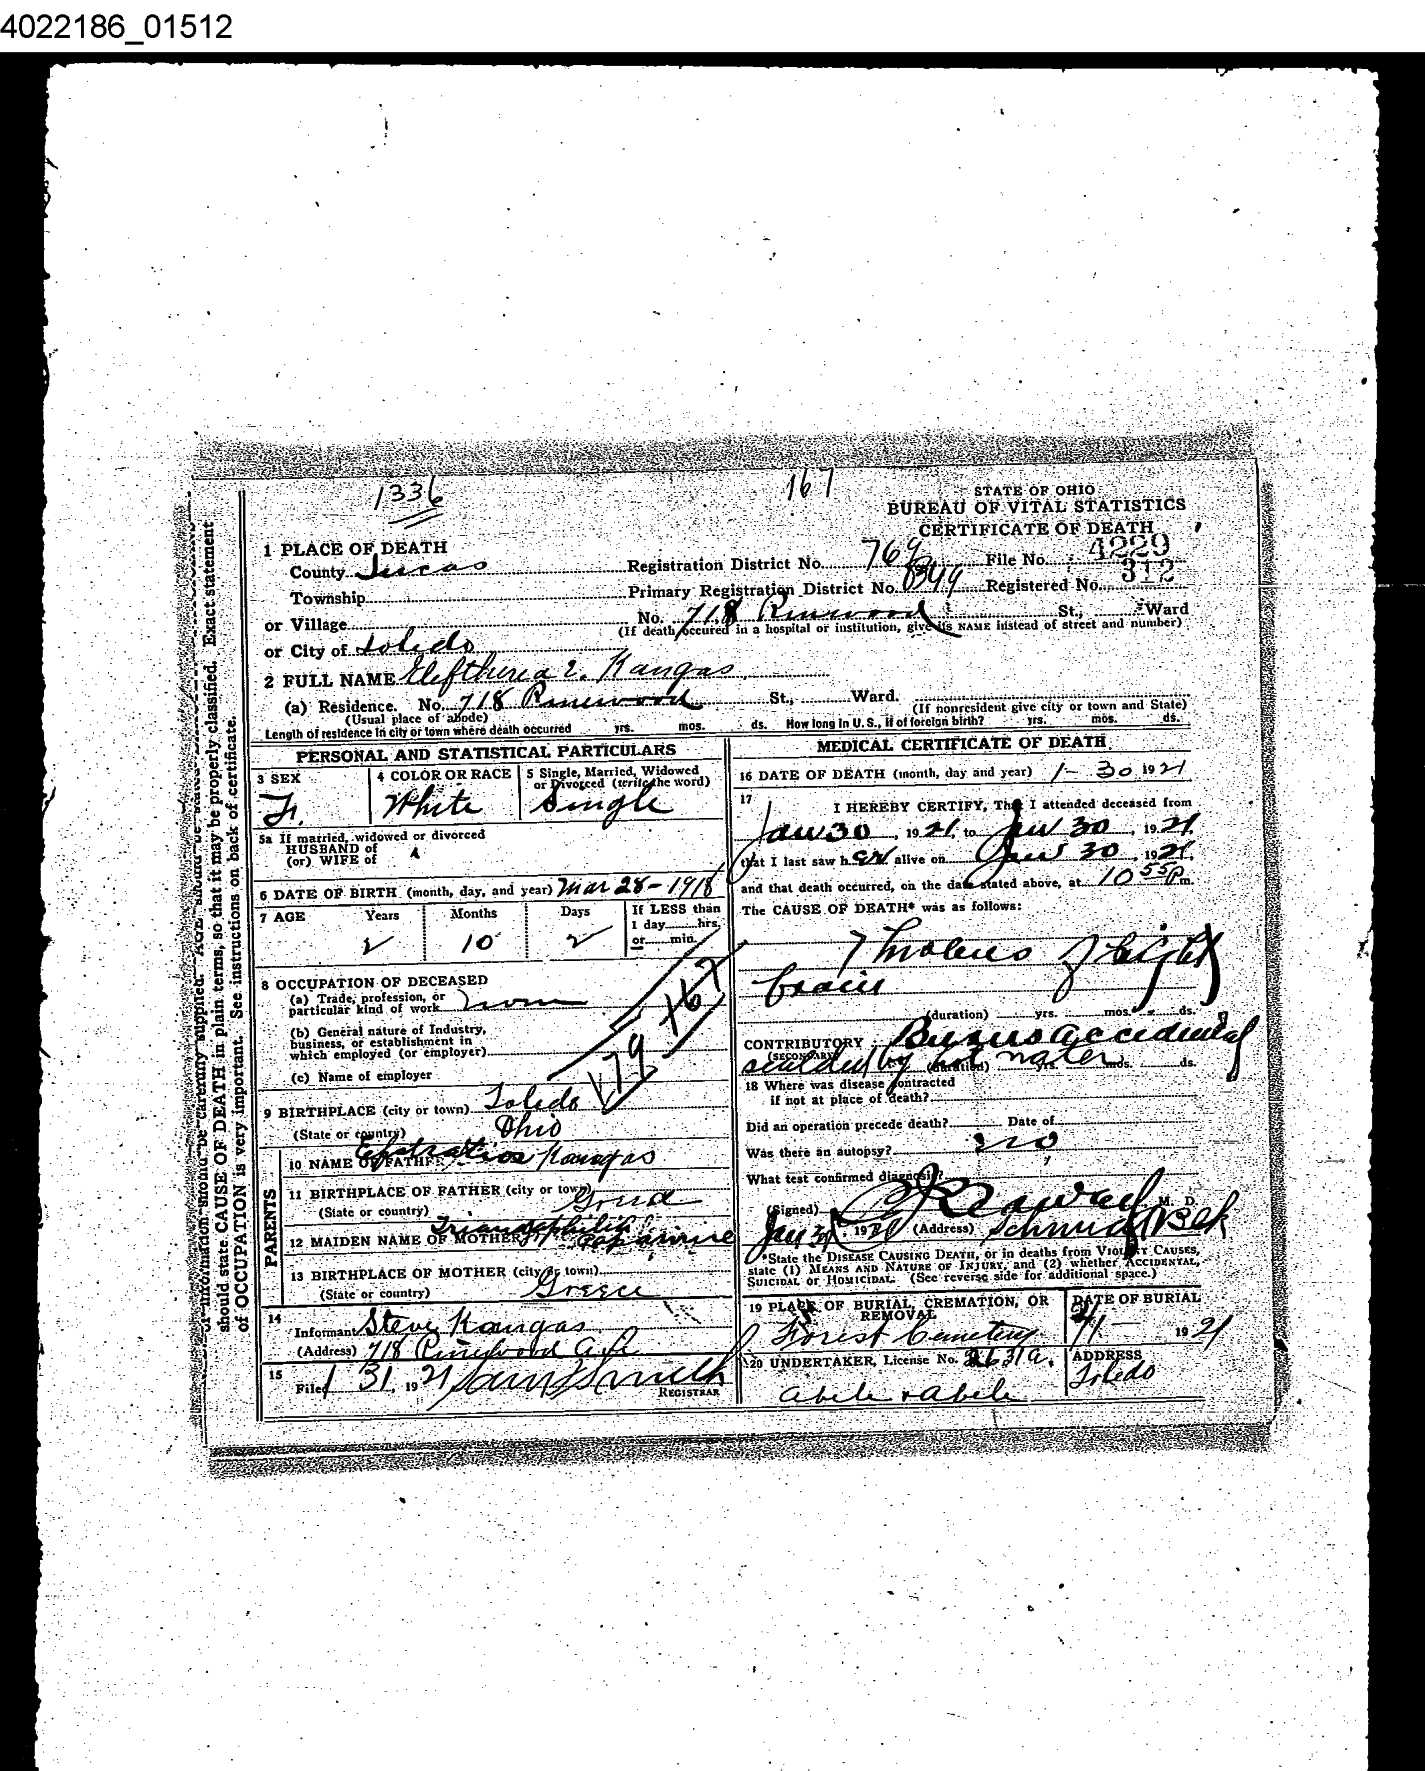 4022186_01512
1336
167
STATE OF OHIO
BUREAU OF VITAL STATISTICS
CERTIFICATE OF DEATH
1 PLACE OF DEATH
County Lucas Registration District No. 769 File No. 4229
Township Primary Registration District No. 8399 Registered No. 312
or Village No. 718 Pinewood St., Ward
(If death occured in a hospital or institution, give its NAME instead of street and number)
or City of Toledo
2 FULL NAME Eleftheria Kangas
(a) Residence. No. 718 Pinewood St., Ward.
(Usual place of abode) (If nonresident give city or town and State)
Length of residence in city or town where death occurred yrs. mos. ds. How long in U. S., if of foreign birth? yrs. mos. ds.
PERSONAL AND STATISTICAL PARTICULARS
3 SEX F.
4 COLOR OR RACE White
5 Single, Married, Widowed or Divorced (write the word) Single
5a If married, widowed or divorced
HUSBAND of
(or) WIFE of
6 DATE OF BIRTH (month, day, and year) Mar 28-1918
7 AGE Years Months Days If LESS than
1 day hrs.
or min.
2 10 2
8 OCCUPATION OF DECEASED
(a) Trade, profession, or
particular kind of work
(b) General nature of Industry,
business, or establishment in
which employed (or employer)
(c) Name of employer
179 167
9 BIRTHPLACE (city or town) Toledo
(State or country) Ohio
PARENTS
10 NAME OF FATHER Efstratios Kangas
11 BIRTHPLACE OF FATHER (city or town)
(State or country)
12 MAIDEN NAME OF MOTHER
13 BIRTHPLACE OF MOTHER (city or town)
(State or country) Greece
14
Informant Steve Kangas
(Address) 718 Pinewood Ave
15
Filed 1 31, 1921
REGISTRAR
MEDICAL CERTIFICATE OF DEATH
16 DATE OF DEATH (month, day and year) 1-30 1921
17
I HEREBY CERTIFY, That I attended deceased from
Jan 30, 1921, to Jan 30, 1921,
that I last saw her alive on Jan 30, 1921,
and that death occurred, on the date stated above, at 10 55 P.m.
The CAUSE OF DEATH* was as follows:
brain
(duration) yrs. mos. ds.
CONTRIBUTORY Burns accidental
(SECONDARY)
scalded by hot water
(duration) yrs. mos. ds.
18 Where was disease contracted
if not at place of death?
Did an operation precede death? Date of
Was there an autopsy? no
What test confirmed diagnosis?
(Signed) M. D.
Jan 31, 1920 (Address) Schmidt Bldg
*State the DISEASE CAUSING DEATH, or in deaths from VIOLENT CAUSES,
state (1) MEANS AND NATURE OF INJURY, and (2) whether ACCIDENTAL,
SUICIDAL or HOMICIDAL. (See reverse side for additional space.)
19 PLACE OF BURIAL, CREMATION, OR REMOVAL
Forest Cemetery
DATE OF BURIAL
1921
20 UNDERTAKER, License No. 2631a.
Abele & Abele
ADDRESS
Toledo
should state CAUSE OF DEATH in plain terms, so that it may be properly classified. Exact statement
of OCCUPATION is very important. See instructions on back of certificate.